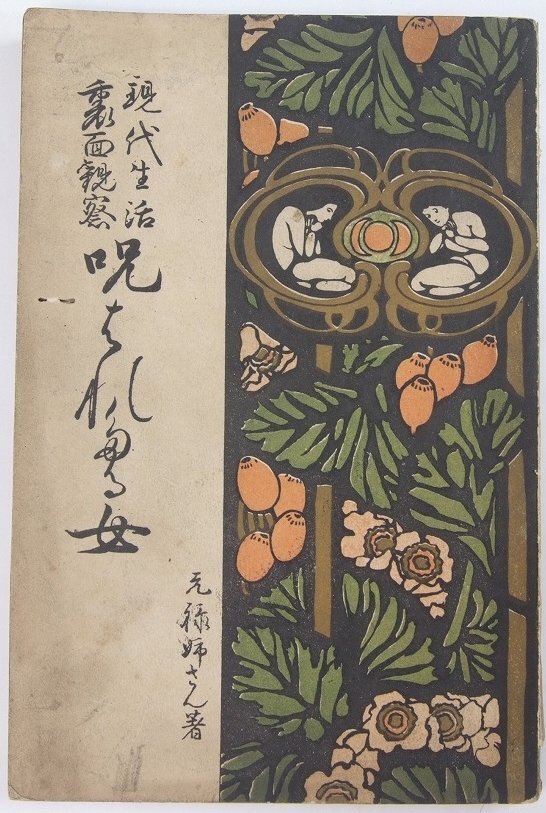 現代生活
裏面觀察
呪はれたる女
元禄姉さん著